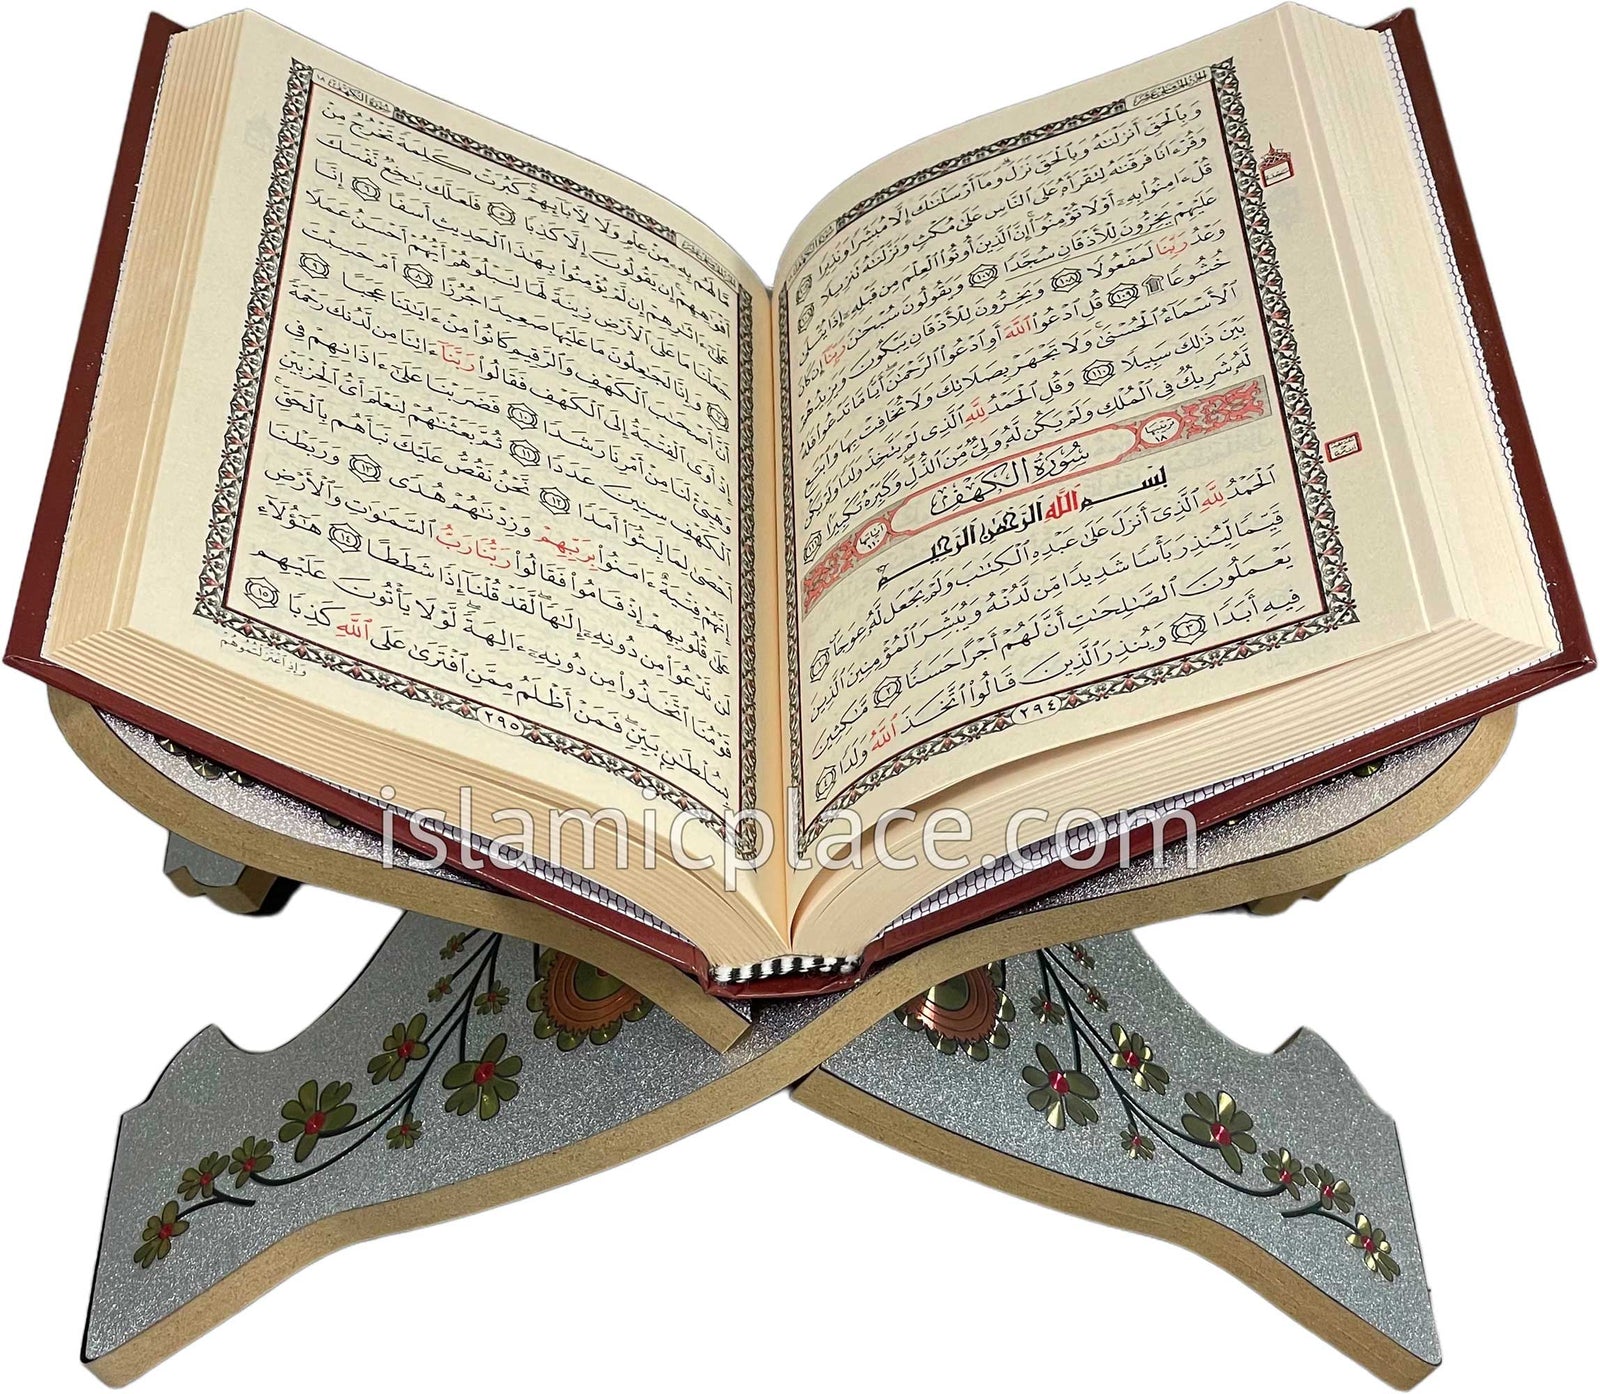 الجزء الخامس عشر
وَبِٱلْحَقِّ أَنزَلْنَٰهُ وَبِٱلْحَقِّ نَزَلَ ۗ وَمَآ أَرْسَلْنَٰكَ إِلَّا مُبَشِّرًا وَنَذِيرًا ١٠٥
وَقُرْءَانًا فَرَقْنَٰهُ لِتَقْرَأَهُۥ عَلَى ٱلنَّاسِ عَلَىٰ مُكْثٍ وَنَزَّلْنَٰهُ تَنزِيلًا ١٠٦
قُلْ ءَامِنُوا۟ بِهِۦٓ أَوْ لَا تُؤْمِنُوٓا۟ ۚ إِنَّ ٱلَّذِينَ أُوتُوا۟ ٱلْعِلْمَ مِن قَبْلِهِۦٓ إِذَا يُتْلَىٰ
عَلَيْهِمْ يَخِرُّونَ لِلْأَذْقَانِ سُجَّدًا ١٠٧ وَيَقُولُونَ سُبْحَٰنَ رَبِّنَآ إِن كَانَ
وَعْدُ رَبِّنَا لَمَفْعُولًا ١٠٨ وَيَخِرُّونَ لِلْأَذْقَانِ يَبْكُونَ وَيَزِيدُهُمْ
خُشُوعًا ۩ ١٠٩ قُلِ ٱدْعُوا۟ ٱللَّهَ أَوِ ٱدْعُوا۟ ٱلرَّحْمَٰنَ ۖ أَيًّا مَّا تَدْعُوا۟ فَلَهُ
ٱلْأَسْمَآءُ ٱلْحُسْنَىٰ ۚ وَلَا تَجْهَرْ بِصَلَاتِكَ وَلَا تُخَافِتْ بِهَا وَٱبْتَغِ
بَيْنَ ذَٰلِكَ سَبِيلًا ١١٠ وَقُلِ ٱلْحَمْدُ لِلَّهِ ٱلَّذِى لَمْ يَتَّخِذْ وَلَدًا وَلَمْ يَكُن
لَّهُۥ شَرِيكٌ فِى ٱلْمُلْكِ وَلَمْ يَكُن لَّهُۥ وَلِىٌّ مِّنَ ٱلذُّلِّ ۖ وَكَبِّرْهُ تَكْبِيرًۢا ١١١
ترتيبها ١٨ سُورَةُ الكَهْفِ آياتها ١١٠
بِسْمِ ٱللَّهِ ٱلرَّحْمَٰنِ ٱلرَّحِيمِ
ٱلْحَمْدُ لِلَّهِ ٱلَّذِىٓ أَنزَلَ عَلَىٰ عَبْدِهِ ٱلْكِتَٰبَ وَلَمْ يَجْعَل لَّهُۥ عِوَجَا ١
قَيِّمًا لِّيُنذِرَ بَأْسًا شَدِيدًا مِّن لَّدُنْهُ وَيُبَشِّرَ ٱلْمُؤْمِنِينَ ٱلَّذِينَ
يَعْمَلُونَ ٱلصَّٰلِحَٰتِ أَنَّ لَهُمْ أَجْرًا حَسَنًا ٢ مَّٰكِثِينَ
فِيهِ أَبَدًا ٣ وَيُنذِرَ ٱلَّذِينَ قَالُوا۟ ٱتَّخَذَ ٱللَّهُ وَلَدًا ٤
٢٩٤
سورة الكهف ١٨
مَّا لَهُم بِهِۦ مِنْ عِلْمٍ وَلَا لِءَابَآئِهِمْ ۚ كَبُرَتْ كَلِمَةً تَخْرُجُ مِنْ
أَفْوَٰهِهِمْ ۚ إِن يَقُولُونَ إِلَّا كَذِبًا ٥ فَلَعَلَّكَ بَٰخِعٌ نَّفْسَكَ
عَلَىٰٓ ءَاثَٰرِهِمْ إِن لَّمْ يُؤْمِنُوا۟ بِهَٰذَا ٱلْحَدِيثِ أَسَفًا ٦ إِنَّا
جَعَلْنَا مَا عَلَى ٱلْأَرْضِ زِينَةً لَّهَا لِنَبْلُوَهُمْ أَيُّهُمْ أَحْسَنُ عَمَلًا
٧ وَإِنَّا لَجَٰعِلُونَ مَا عَلَيْهَا صَعِيدًا جُرُزًا ٨ أَمْ حَسِبْتَ
أَنَّ أَصْحَٰبَ ٱلْكَهْفِ وَٱلرَّقِيمِ كَانُوا۟ مِنْ ءَايَٰتِنَا عَجَبًا ٩
إِذْ أَوَى ٱلْفِتْيَةُ إِلَى ٱلْكَهْفِ فَقَالُوا۟ رَبَّنَآ ءَاتِنَا مِن لَّدُنكَ رَحْمَةً
وَهَيِّئْ لَنَا مِنْ أَمْرِنَا رَشَدًا ١٠ فَضَرَبْنَا عَلَىٰٓ ءَاذَانِهِمْ فِى
ٱلْكَهْفِ سِنِينَ عَدَدًا ١١ ثُمَّ بَعَثْنَٰهُمْ لِنَعْلَمَ أَىُّ ٱلْحِزْبَيْنِ
أَحْصَىٰ لِمَا لَبِثُوٓا۟ أَمَدًا ١٢ نَّحْنُ نَقُصُّ عَلَيْكَ نَبَأَهُم بِٱلْحَقِّ ۚ
إِنَّهُمْ فِتْيَةٌ ءَامَنُوا۟ بِرَبِّهِمْ وَزِدْنَٰهُمْ هُدًى ١٣ وَرَبَطْنَا
عَلَىٰ قُلُوبِهِمْ إِذْ قَامُوا۟ فَقَالُوا۟ رَبُّنَا رَبُّ ٱلسَّمَٰوَٰتِ وَٱلْأَرْضِ
لَن نَّدْعُوَا۟ مِن دُونِهِۦٓ إِلَٰهًا ۖ لَّقَدْ قُلْنَآ إِذًا شَطَطًا ١٤ هَٰٓؤُلَآءِ
قَوْمُنَا ٱتَّخَذُوا۟ مِن دُونِهِۦٓ ءَالِهَةً ۖ لَّوْلَا يَأْتُونَ عَلَيْهِم
بِسُلْطَٰنٍۭ بَيِّنٍ ۖ فَمَنْ أَظْلَمُ مِمَّنِ ٱفْتَرَىٰ عَلَى ٱللَّهِ كَذِبًا ١٥
٢٩٥
وَإِذِ ٱعْتَزَلْتُمُوهُمْ
islamicplace.com